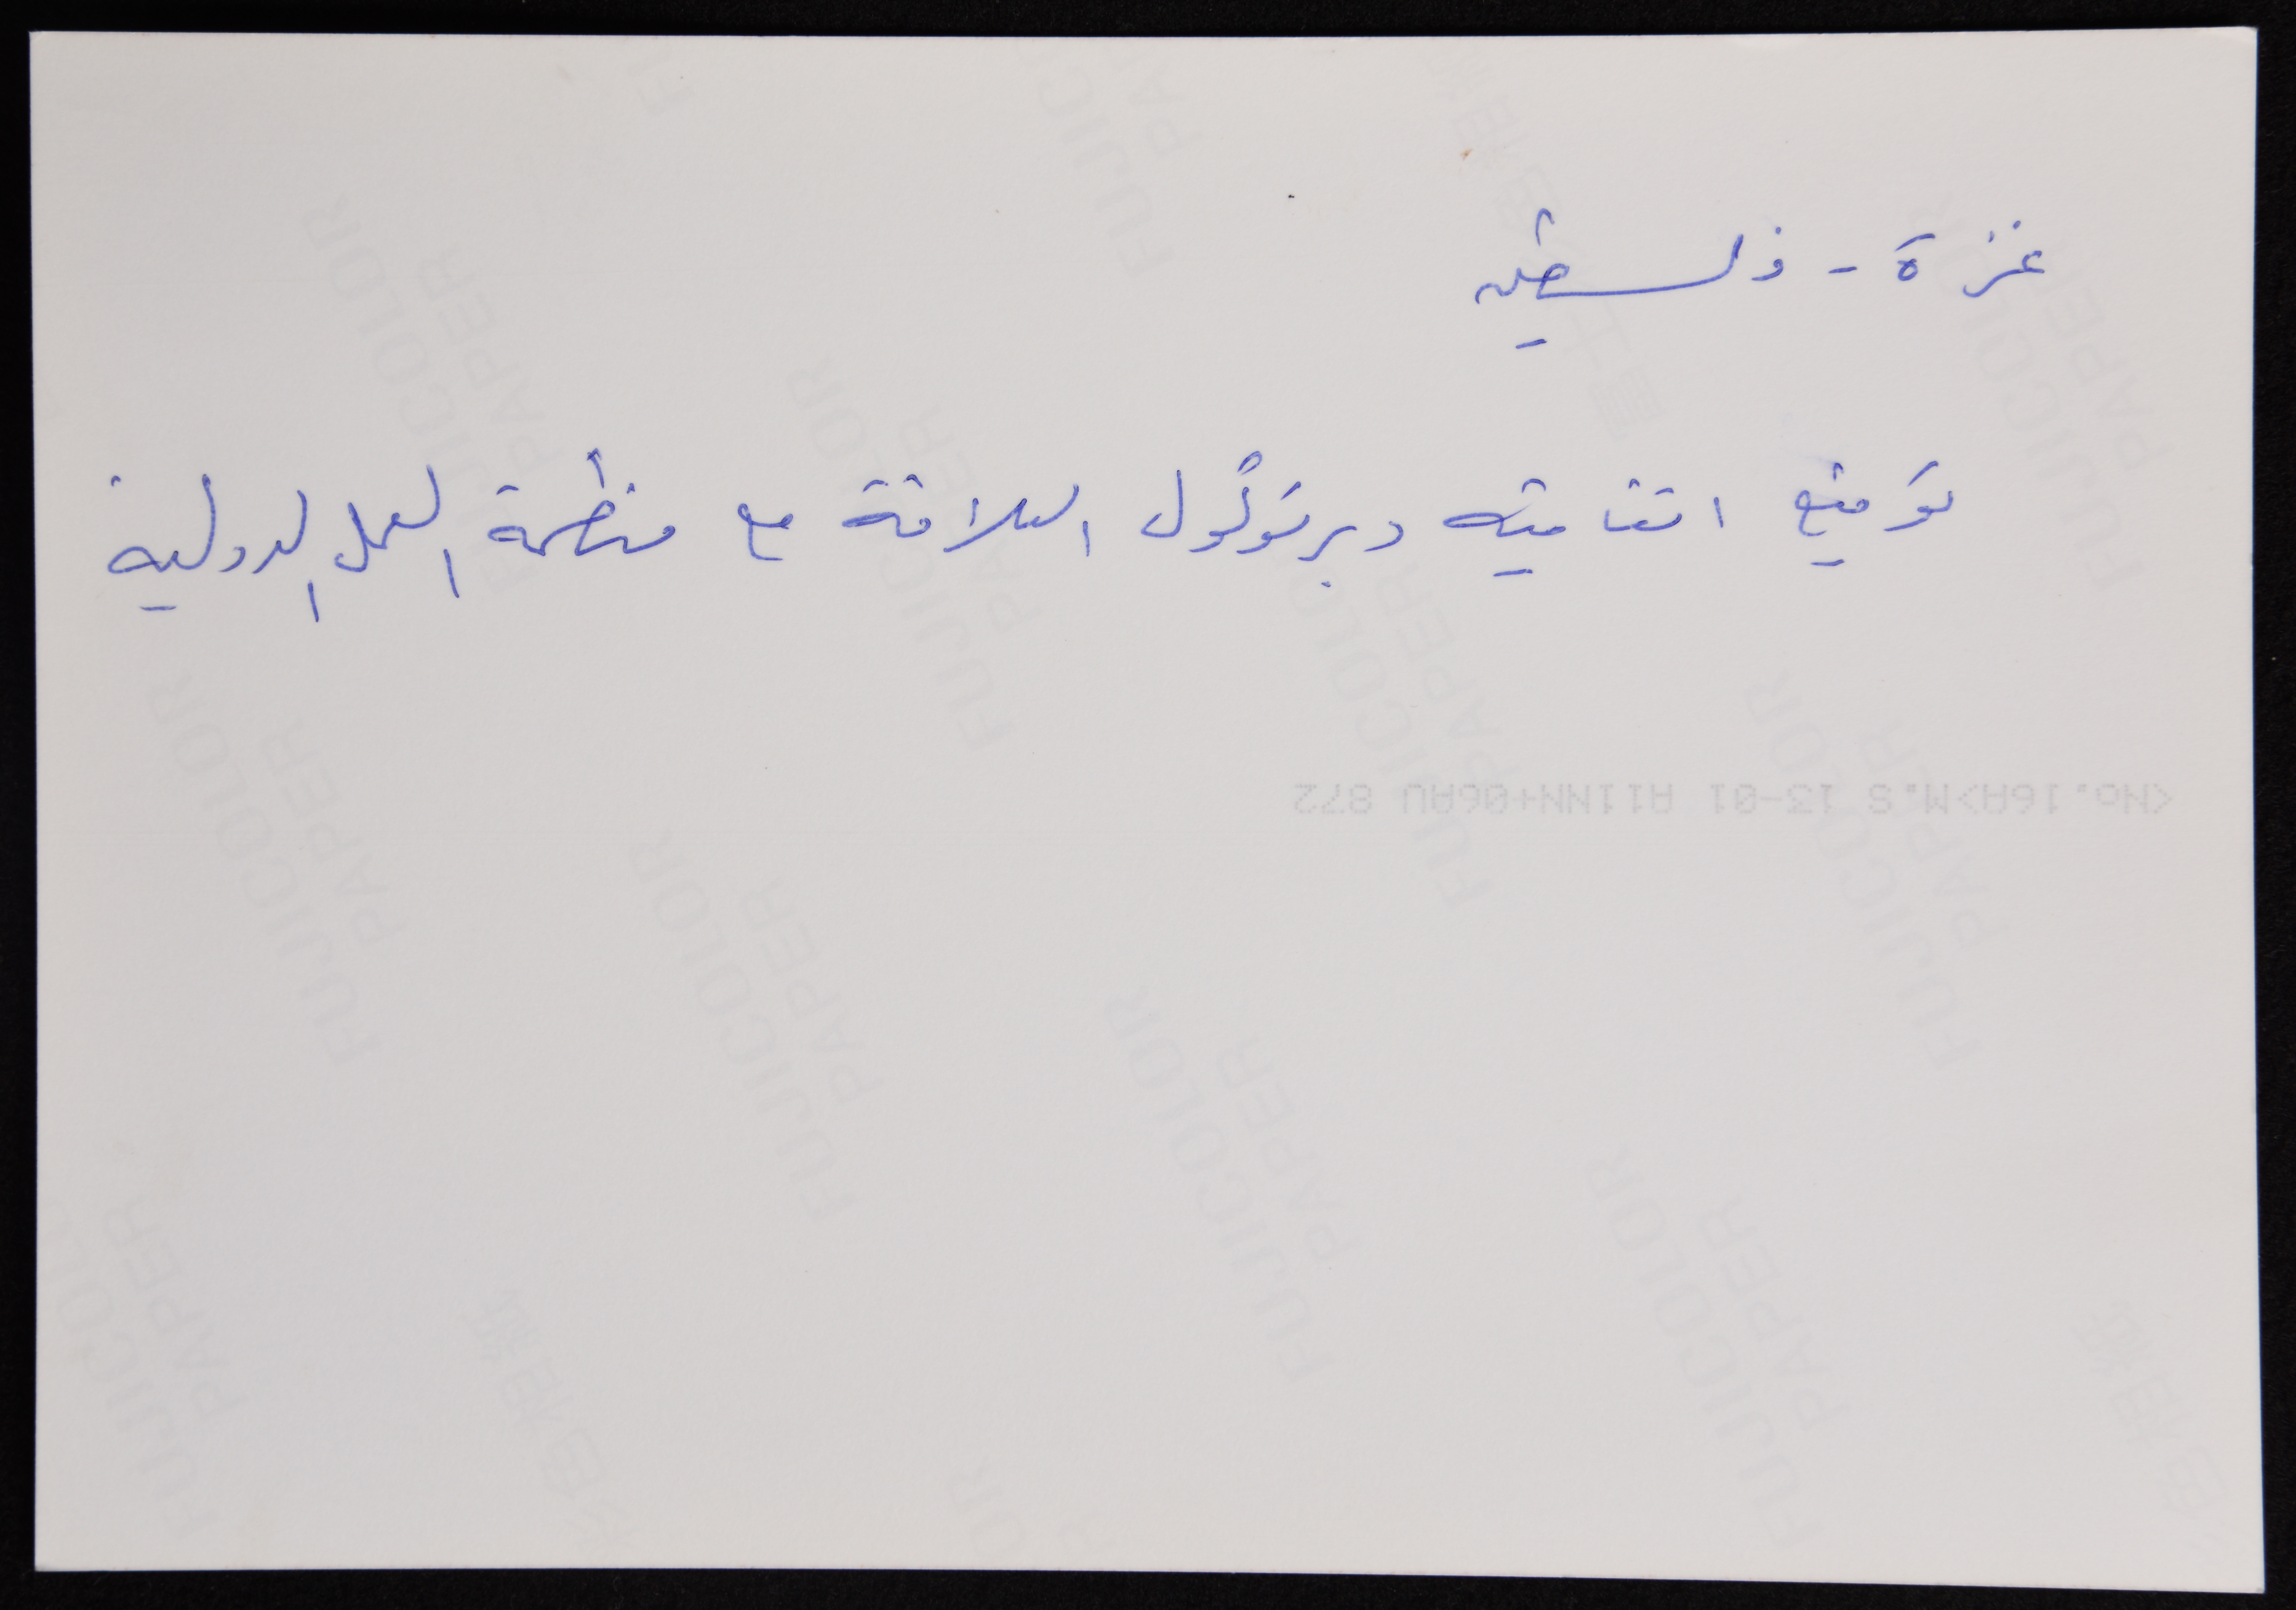 غزة - فلسطين
توقيع اتفاقية وبرتوكول العلاقة مع منظمة العمل الدولية
<No.16A>M.S 13-01 A11NN+06AU 872
FUJICOLOR PAPER